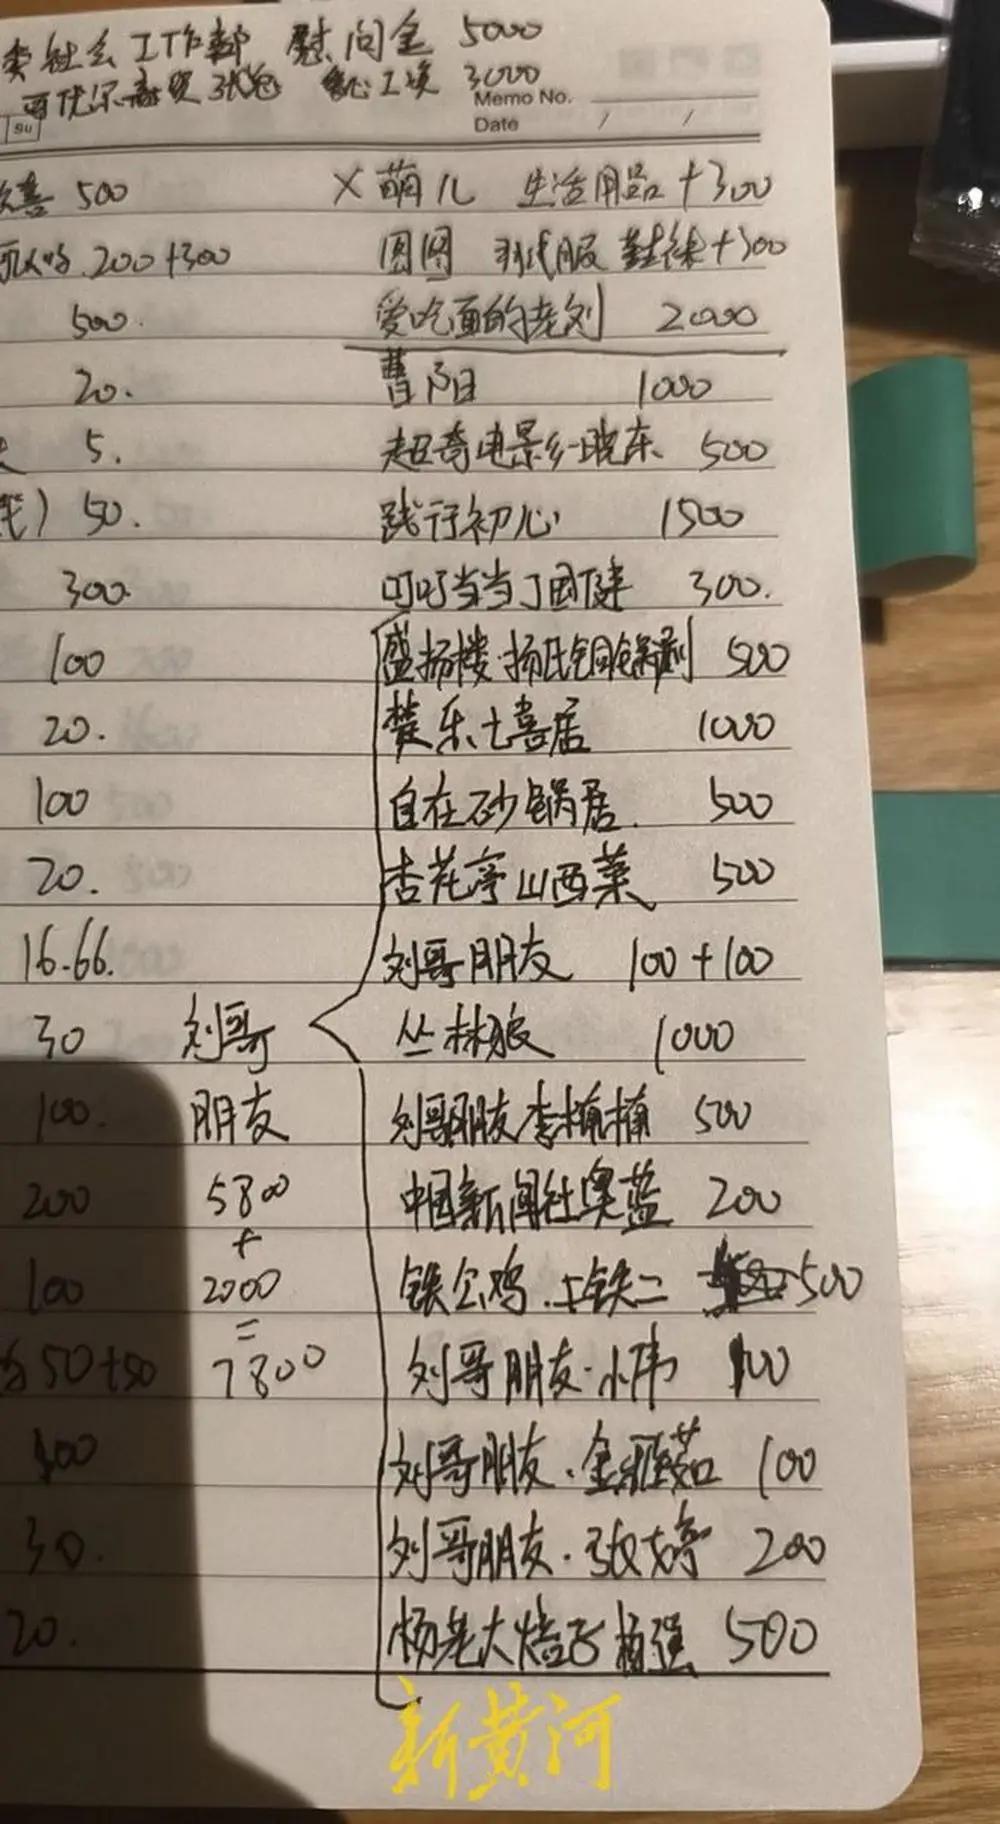 委社会工作部 慰问金 5000
爱心工资 3000
Memo No.
Su
Date / /
喜 500 ×萌儿 生活用品+300
200+300 圆圆 羽绒服 鞋袜+300
500. 爱吃面的老刘 2000
20. 曹阳 1000
5. 超奇电影乡-晓东. 500
) 50. 践行初心 1500
300. 叮叮当当丁国健 300.
100 盛扬楼·杨氏铜锅涮 500
20. 楚乐七喜居 1000
100 自在砂锅居. 500
20. 杏花亭山西菜 500
16.66. 刘哥朋友 100+100
30 刘哥 丛林狼 1000
100. 朋友 刘哥朋友李楠楠 500
200 5800 中国新闻社奥蓝 200
+
100 2000 铁公鸡.上铁二 500
=
50+50 7800 刘哥朋友·小伟 100
100 刘哥朋友.金雅茹 100
30. 刘哥朋友.张婷 200
20. 杨老大焙子杨强 500
新黄河